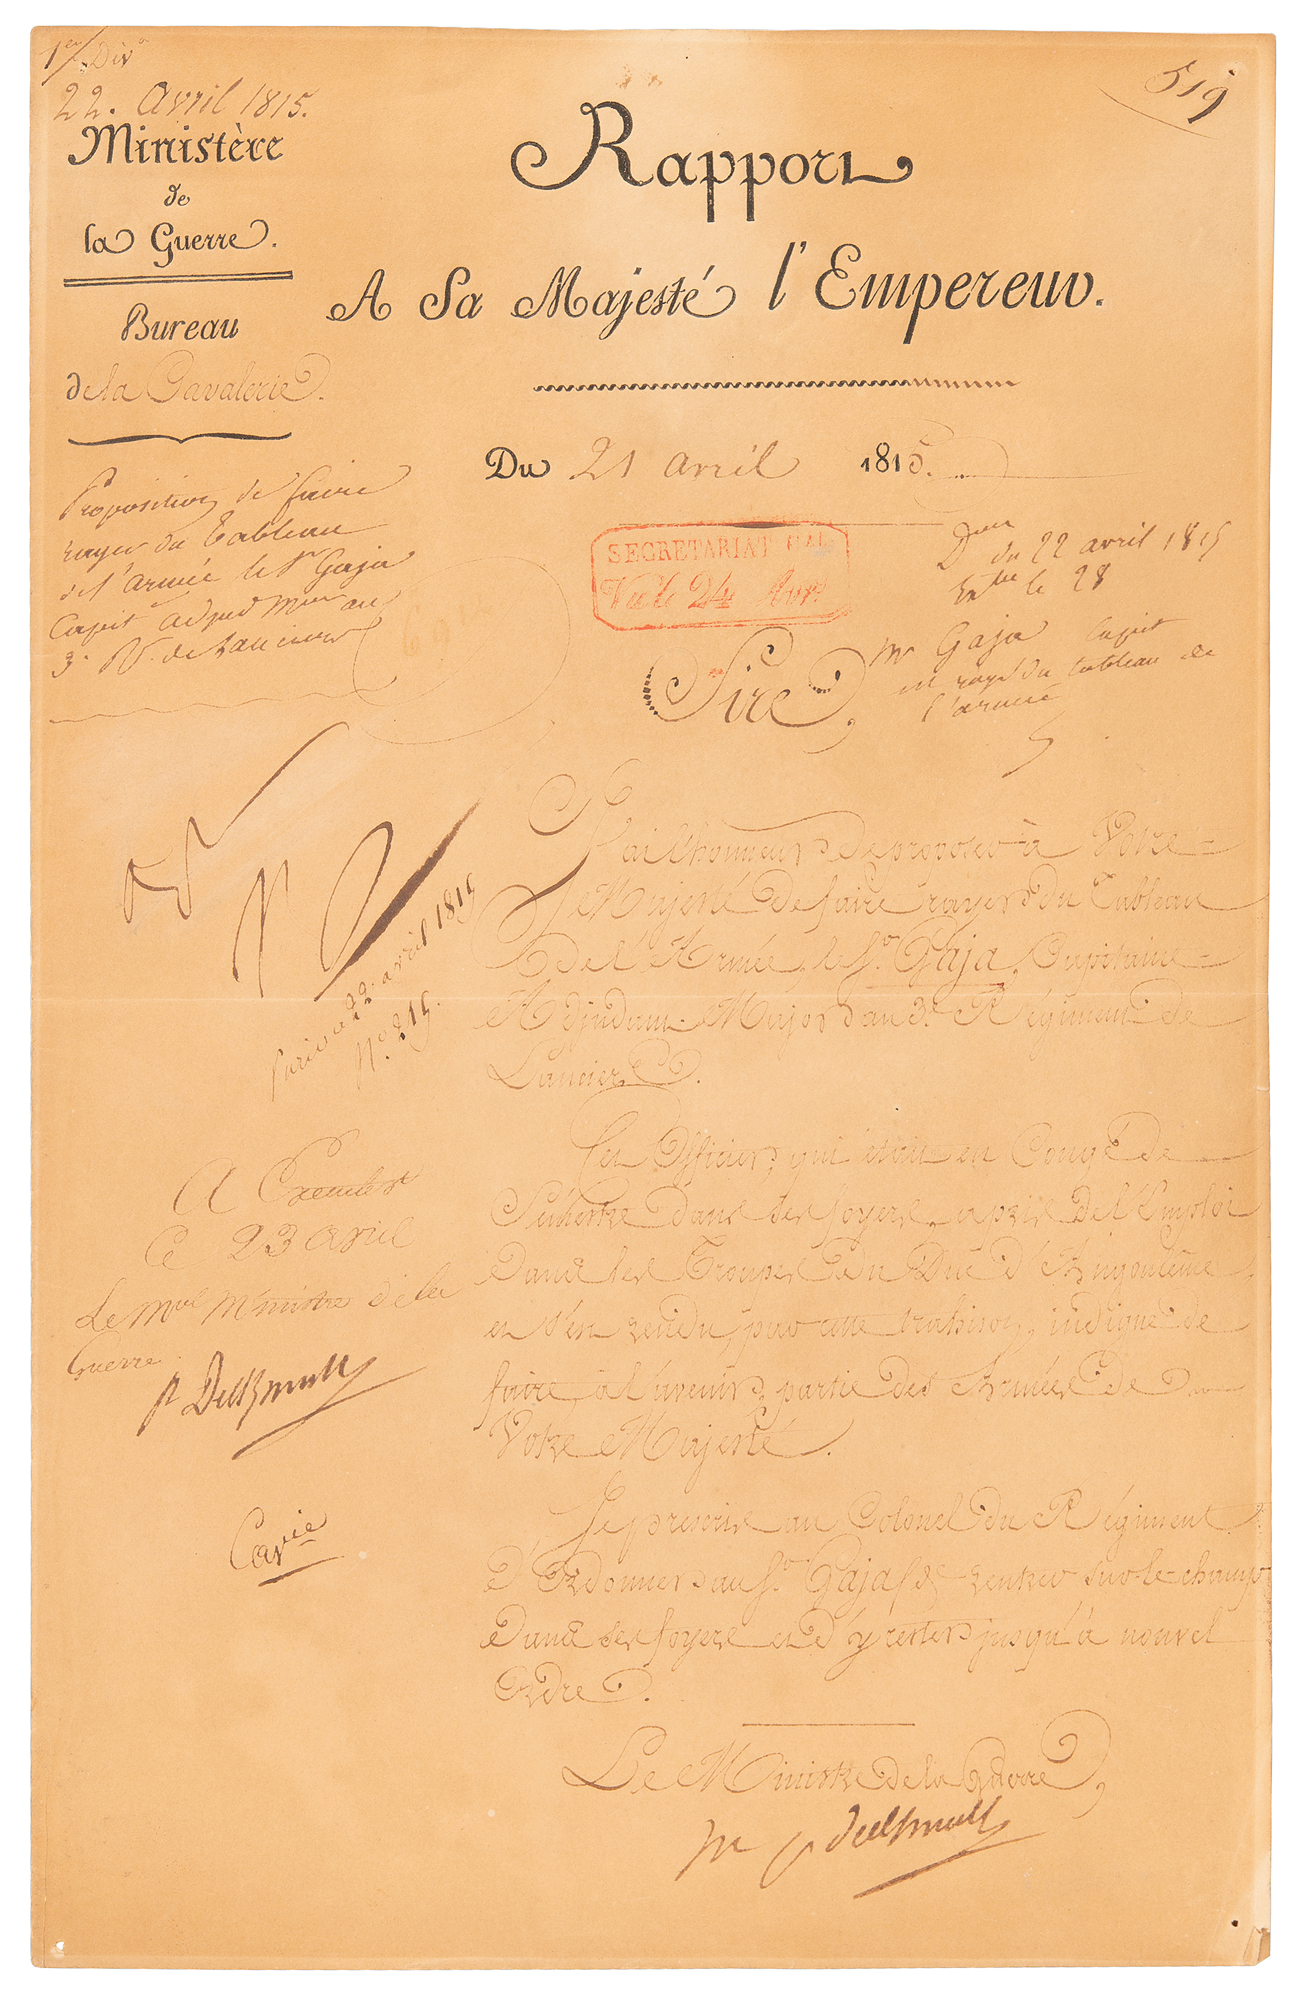 1ere Divon
22. Avril 1815.
Ministère
de
la Guerre.
Bureau
de la Cavalerie.
Proposition de faire
rayer du Tableau
de l'armée le Sr Gaja
Capit. adjud. Mor au
3e Rt de Lanciers
519
Rapport
A Sa Majesté l'Empereur.
Du 21 avril 1815.
SECRETARIAT GAL
Vu le 24 Avril
Don du 22 avril 1815
le 28
Mr Gaja Capit
est rayé du tableau de
l'armée
Sire,
J'ai l'honneur de proposer à Votre
Majesté de faire rayer du Tableau
de l'Armée, le Sr. Gaja, Capitaine
Adjudant-Major au 3e. Régiment de
Lanciers.
Cet Officier, qui était en Congé de
Semestre dans ses foyers, a pris de l'Emploi
dans les Troupes du Duc d'Angoulême
et s'est rendu, par cette trahison, indigne de
faire, à l'avenir, partie des Armées de
Votre Majesté.
Je prescris au Colonel du Régiment
d'Ordonner au Sr. Gaja de rentrer sur-le-champ
dans ses foyers et d'y rester jusqu'à nouvel
Ordre.
Le Ministre de la Guerre,
Mal P. d'Eckmuhl
Np
Paris 22. avril 1815
No. 215.
A Exécuter
Ce 23 avril
Le Mal Ministre de la
Guerre
P. d'Eckmuhl
Cavie